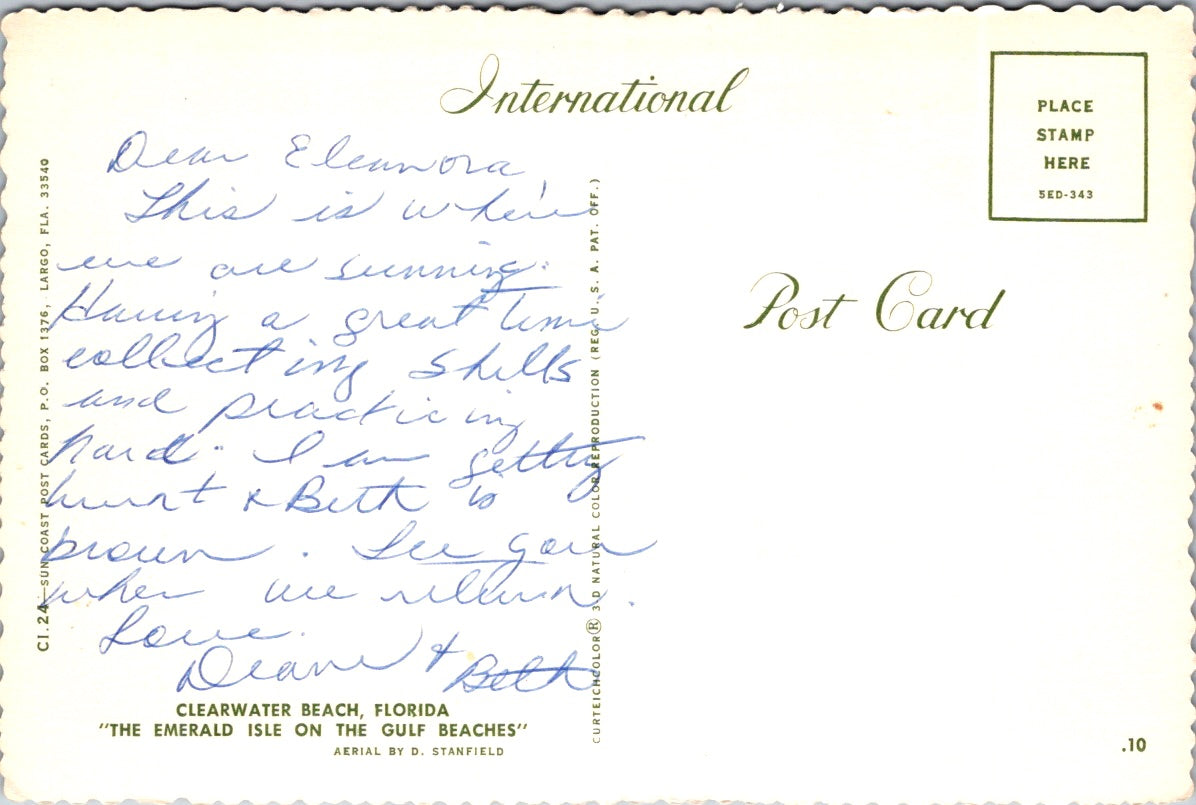 International
PLACE
STAMP
HERE
5ED-343
Post Card
Dear Eleanora,
This is where
we are sunning.
Having a great time
collecting shells
and practicing
hard. I am getting
burnt & Beth is
brown. See you
when we return.
Love.
Deane & Beth
CLEARWATER BEACH, FLORIDA
"THE EMERALD ISLE ON THE GULF BEACHES"
AERIAL BY D. STANFIELD
CI.24—SUN COAST POST CARDS, P.O. BOX 1376, LARGO, FLA. 33540
CURTEICHCOLOR® 3-D NATURAL COLOR REPRODUCTION (REG. U. S. A. PAT. OFF.)
.10